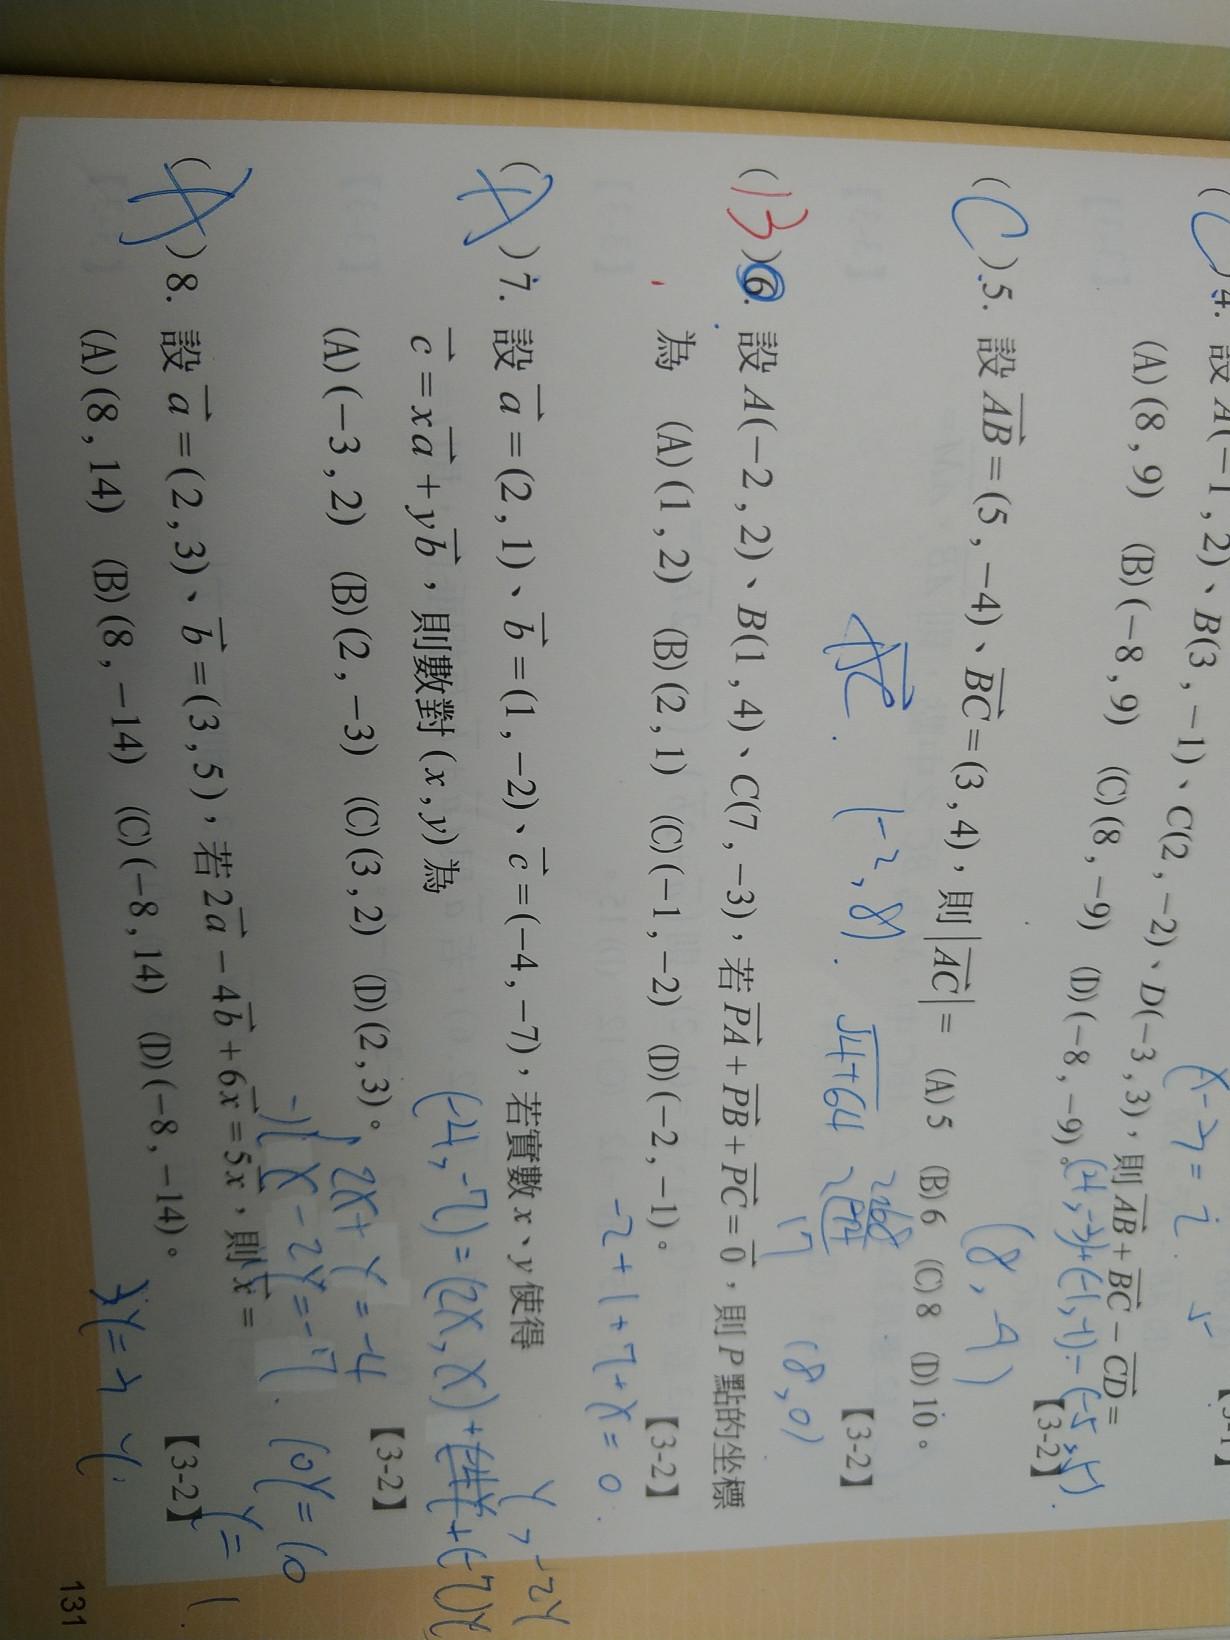 4. 設 A(−1 , 2)、B(3 , −1)、C(2 , −2)、D(−3 , 3)，則 AB + BC − CD =
(A) (8 , 9) (B) (−8 , 9) (C) (8 , −9) (D) (−8 , −9)。
【3-2】
(8, -9)
( C ) 5. 設 AB = (5 , −4)、BC = (3 , 4)，則 |AC| = (A) 5 (B) 6 (C) 8 (D) 10。
【3-2】
(-2, 8). √4+64
17
(8, 0)
( B ) 6. 設 A(−2 , 2)、B(1 , 4)、C(7 , −3)，若 PA + PB + PC = 0，則 P 點的坐標
為 (A) (1 , 2) (B) (2 , 1) (C) (−1 , −2) (D) (−2 , −1)。
【3-2】
-2+1+7+x=0
( A ) 7. 設 a = (2 , 1)、b = (1 , −2)、c = (−4 , −7)，若實數 x、y 使得
c = xa + yb，則數對 (x , y) 為
(-4, -7) = (2x, x) +
(A) (−3 , 2) (B) (2 , −3) (C) (3 , 2) (D) (2 , 3)。
【3-2】
2x+y=-4
x-2y=-7
( A ) 8. 設 a = (2 , 3)、b = (3 , 5)，若 2a − 4b + 6x = 5x，則 x =
(A) (8 , 14) (B) (8 , −14) (C) (−8 , 14) (D) (−8 , −14)。
【3-2】
131